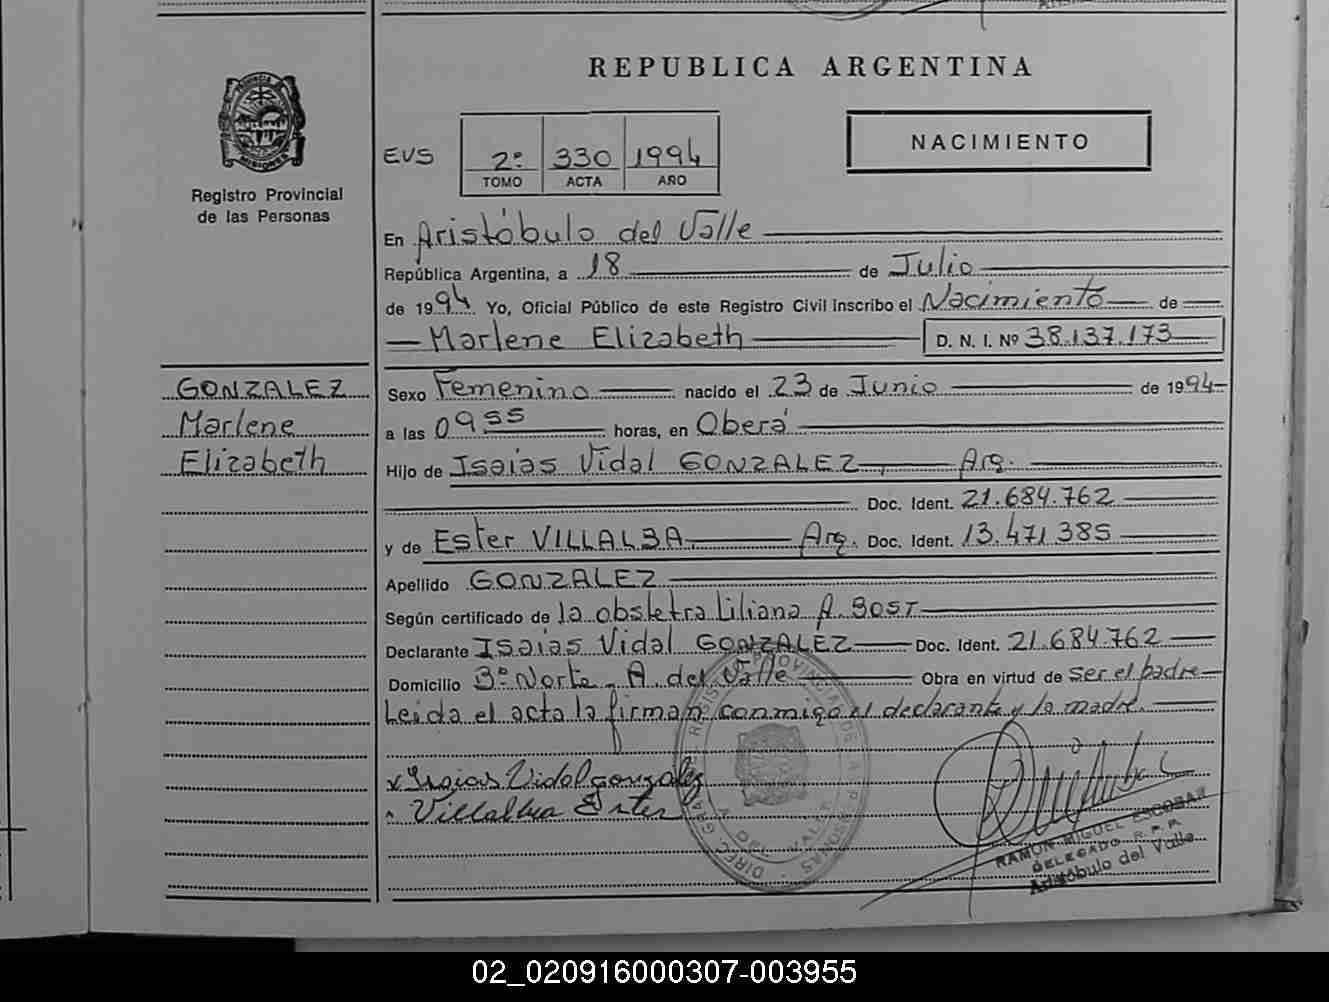 REPUBLICA ARGENTINA
PROVINCIA DE
MISIONES
Registro Provincial
de las Personas
EVS 2º 330 1994
TOMO ACTA AÑO
NACIMIENTO
En Aristóbulo del Valle
República Argentina, a 18 de Julio
de 1994 Yo, Oficial Público de este Registro Civil inscribo el Nacimiento de
Marlene Elizabeth D. N. I. Nº 38.137.173
GONZALEZ
Marlene
Elizabeth
Sexo Femenino nacido el 23 de Junio de 1994
a las 0955 horas, en Oberá
Hijo de Isaias Vidal GONZALEZ, Arg.
Doc. Ident. 21.684.762
y de Ester VILLALBA. Arg. Doc. Ident. 13.471.385
Apellido GONZALEZ
Según certificado de la obstetra Liliana A. BOST
Declarante Isaias Vidal GONZALEZ Doc. Ident. 21.684.762
Domicilio 3º Norte - A. del Valle Obra en virtud de ser el padre
Leida el acta la firman conmigo el declarante y la madre.
x Isaias Vidal gonzalez
Villalba Ester
RAMON MIGUEL ESCOBAR
DELEGADO R.P.P.
Aristóbulo del Valle
02_020916000307-003955